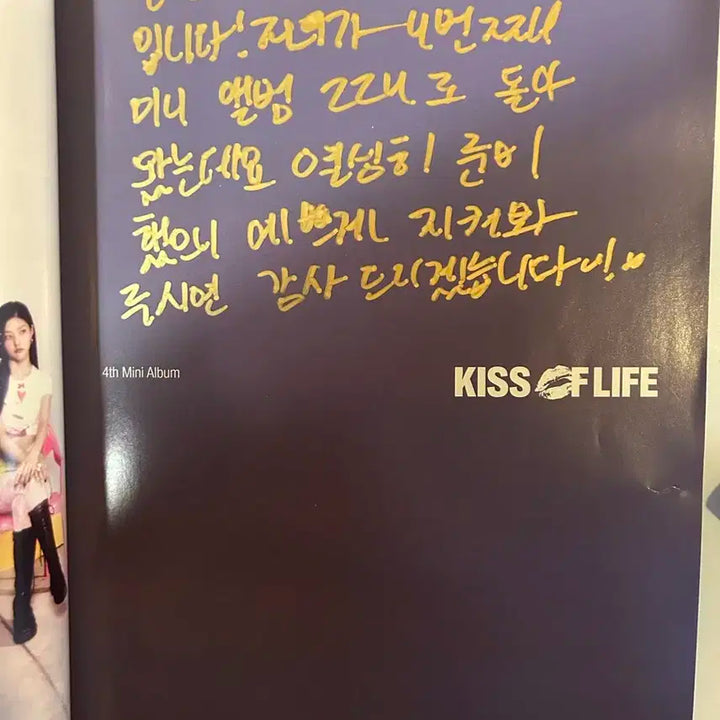 입니다! 저희가 4번째
미니 앨범 224로 돌아
왔는데요 열심히 준비
했으니 예쁘게 지켜봐
주시면 감사 드리겠습니다!
4th Mini Album
KISS OF LIFE